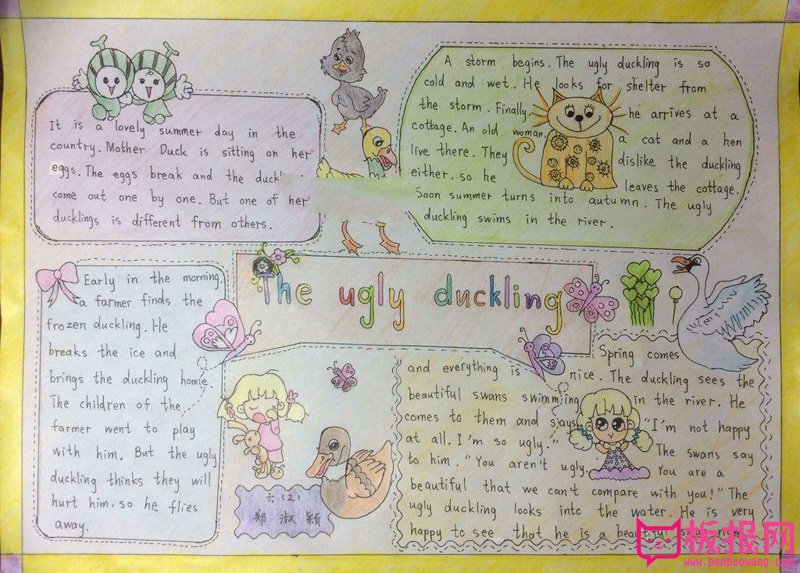 It is a lovely summer day in the
country. Mother Duck is sitting on her
eggs. The eggs break and the
come out one by one. But one of her
ducklings is different from others.
A storm begins. The ugly duckling is so
cold and wet. He looks for shelter from
the storm. Finally, he arrives at a
cottage. An old woman, a cat and a hen
live there. They dislike the duckling
either, so he leaves the cottage.
Soon summer turns into autumn. The ugly
duckling swims in the river.
The ugly duckling
Early in the morning,
a farmer finds the
frozen duckling. He
breaks the ice and
brings the duckling home.
The children of the
farmer went to play
with him. But the ugly
duckling thinks they will
hurt him, so he flies
away.
Spring comes
and everything is nice. The duckling sees the
beautiful swans swimming in the river. He
comes to them and says, "I'm not happy
at all. I'm so ugly." The swans say
to him. "You aren't ugly. You are a
beautiful that we can't compare with you!" The
ugly duckling looks into the water. He is very
happy to see that he is a beautiful
六(2)
郑淑颖
板报网
www.banbaowang.com